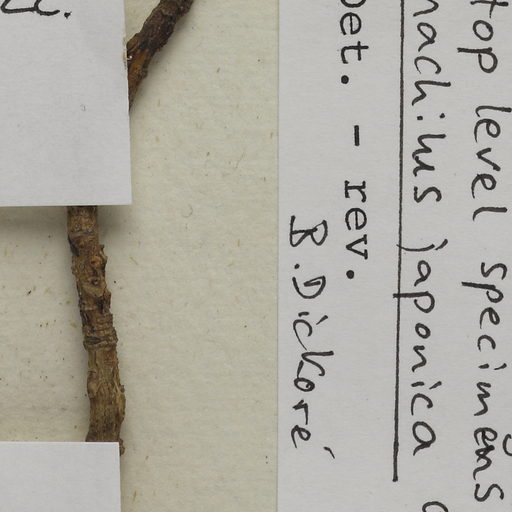 top level specimens
machilus japonica
Det. - rev.
B. Dickoré